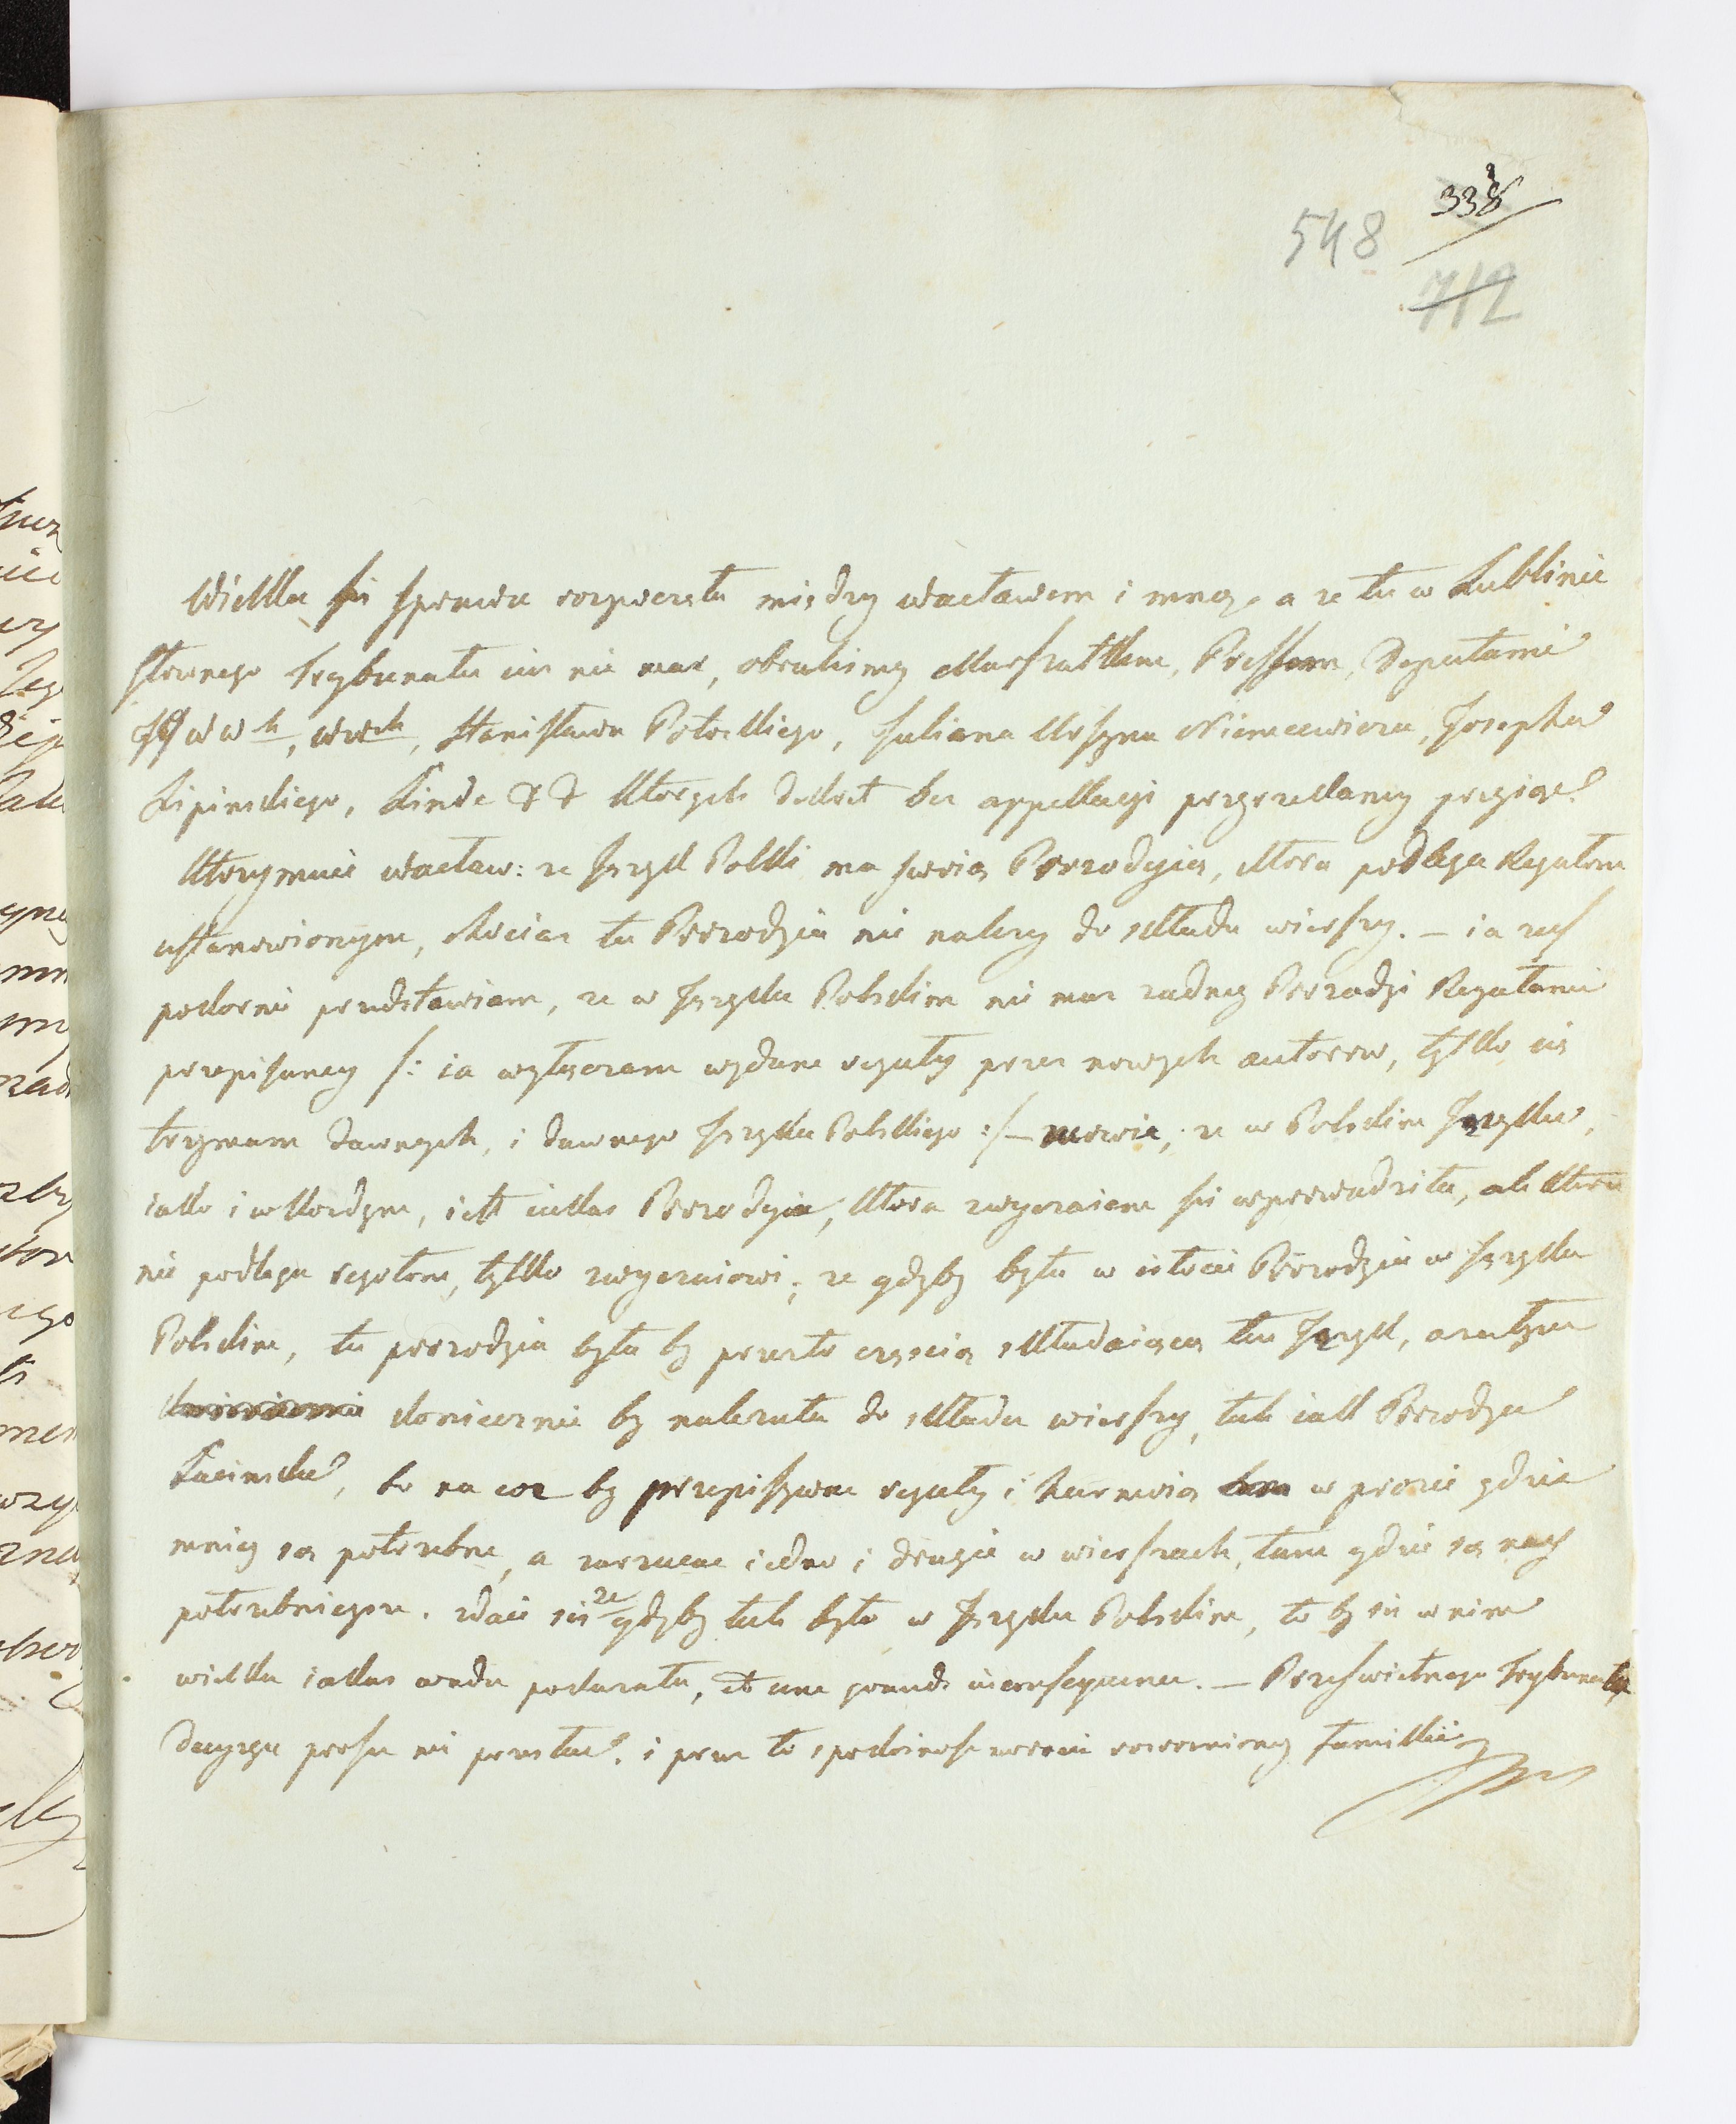 338
548
712
Wielka się sprawa rozpoczęła między Wacławem i mną, a że tu w Lublinie
słownego Trybunału iuż nie masz, obraliśmy Marszałkiem, Prezesem, Deputami
JJWWch, WWch, Stanisława Potockiego, Juliana Ursyna Niemcewicza, Josepha
Lipinskiego, Linde & & ktorych dekret bez appellacyi przyrzekamy przyiąć.
Utrzymuie Wacław: że Język Polski ma swoią Prozodyią, ktora podlega Regułom
ustanowionym, chociaż ta Prozodyia nie należy do składu wierszy. – ia zaś
pokornie przedstawiam, że w Języku Polskim nie masz żadney Prozodyi Regułami
przepisaney /: ia wyłączam wydane reguły przez nowych autorow, tylko się
trzymam dawnych, i dawnego Języka Polskiego :/ – mowie, że w Polskim Języku,
iako i w kożdym, iest iakaś Prozodyia, ktora zwyczaiem się wprowadziła, ale ktora
nie podlega regułom, tylko zwyczaiowi; że gdyby była w istocie Prozodyia w Języku
Polskim, ta prozodyia była by przeto częścią składaiącą ten Język, a zatym
koniecznie by należała do składu wierszy, tak iak Prozodya
Łacinska, bo na coż by przepisywać reguły i harmonią w prozie gdzie
mniey są potrzebne, a zarzucać iedno i drugie w wierszach, tam gdzie są nay
potrzebnieysze. zdaie się że gdyby tak było w Języku Polskim, to by się w nim
wielka iakaś wada pokazała, et une grande inconsequence. – Prześwietnego Trybunału
decyzyą proszę mi przesłać, i przez to spokoiność wrocić rożnioney familii